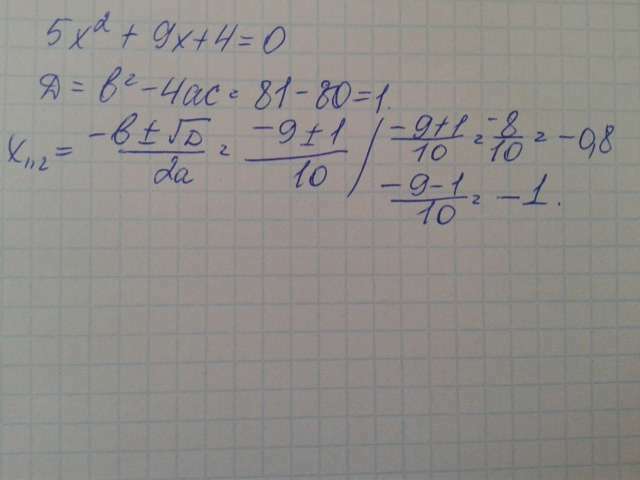 5x² + 9x + 4 = 0
Д = в² - 4ac = 81 - 80 = 1.
x₁,₂ = (-в ± √Д)/2a = (-9 ± 1)/10 / (-9+1)/10 = -8/10 = -0,8
(-9-1)/10 = -1.